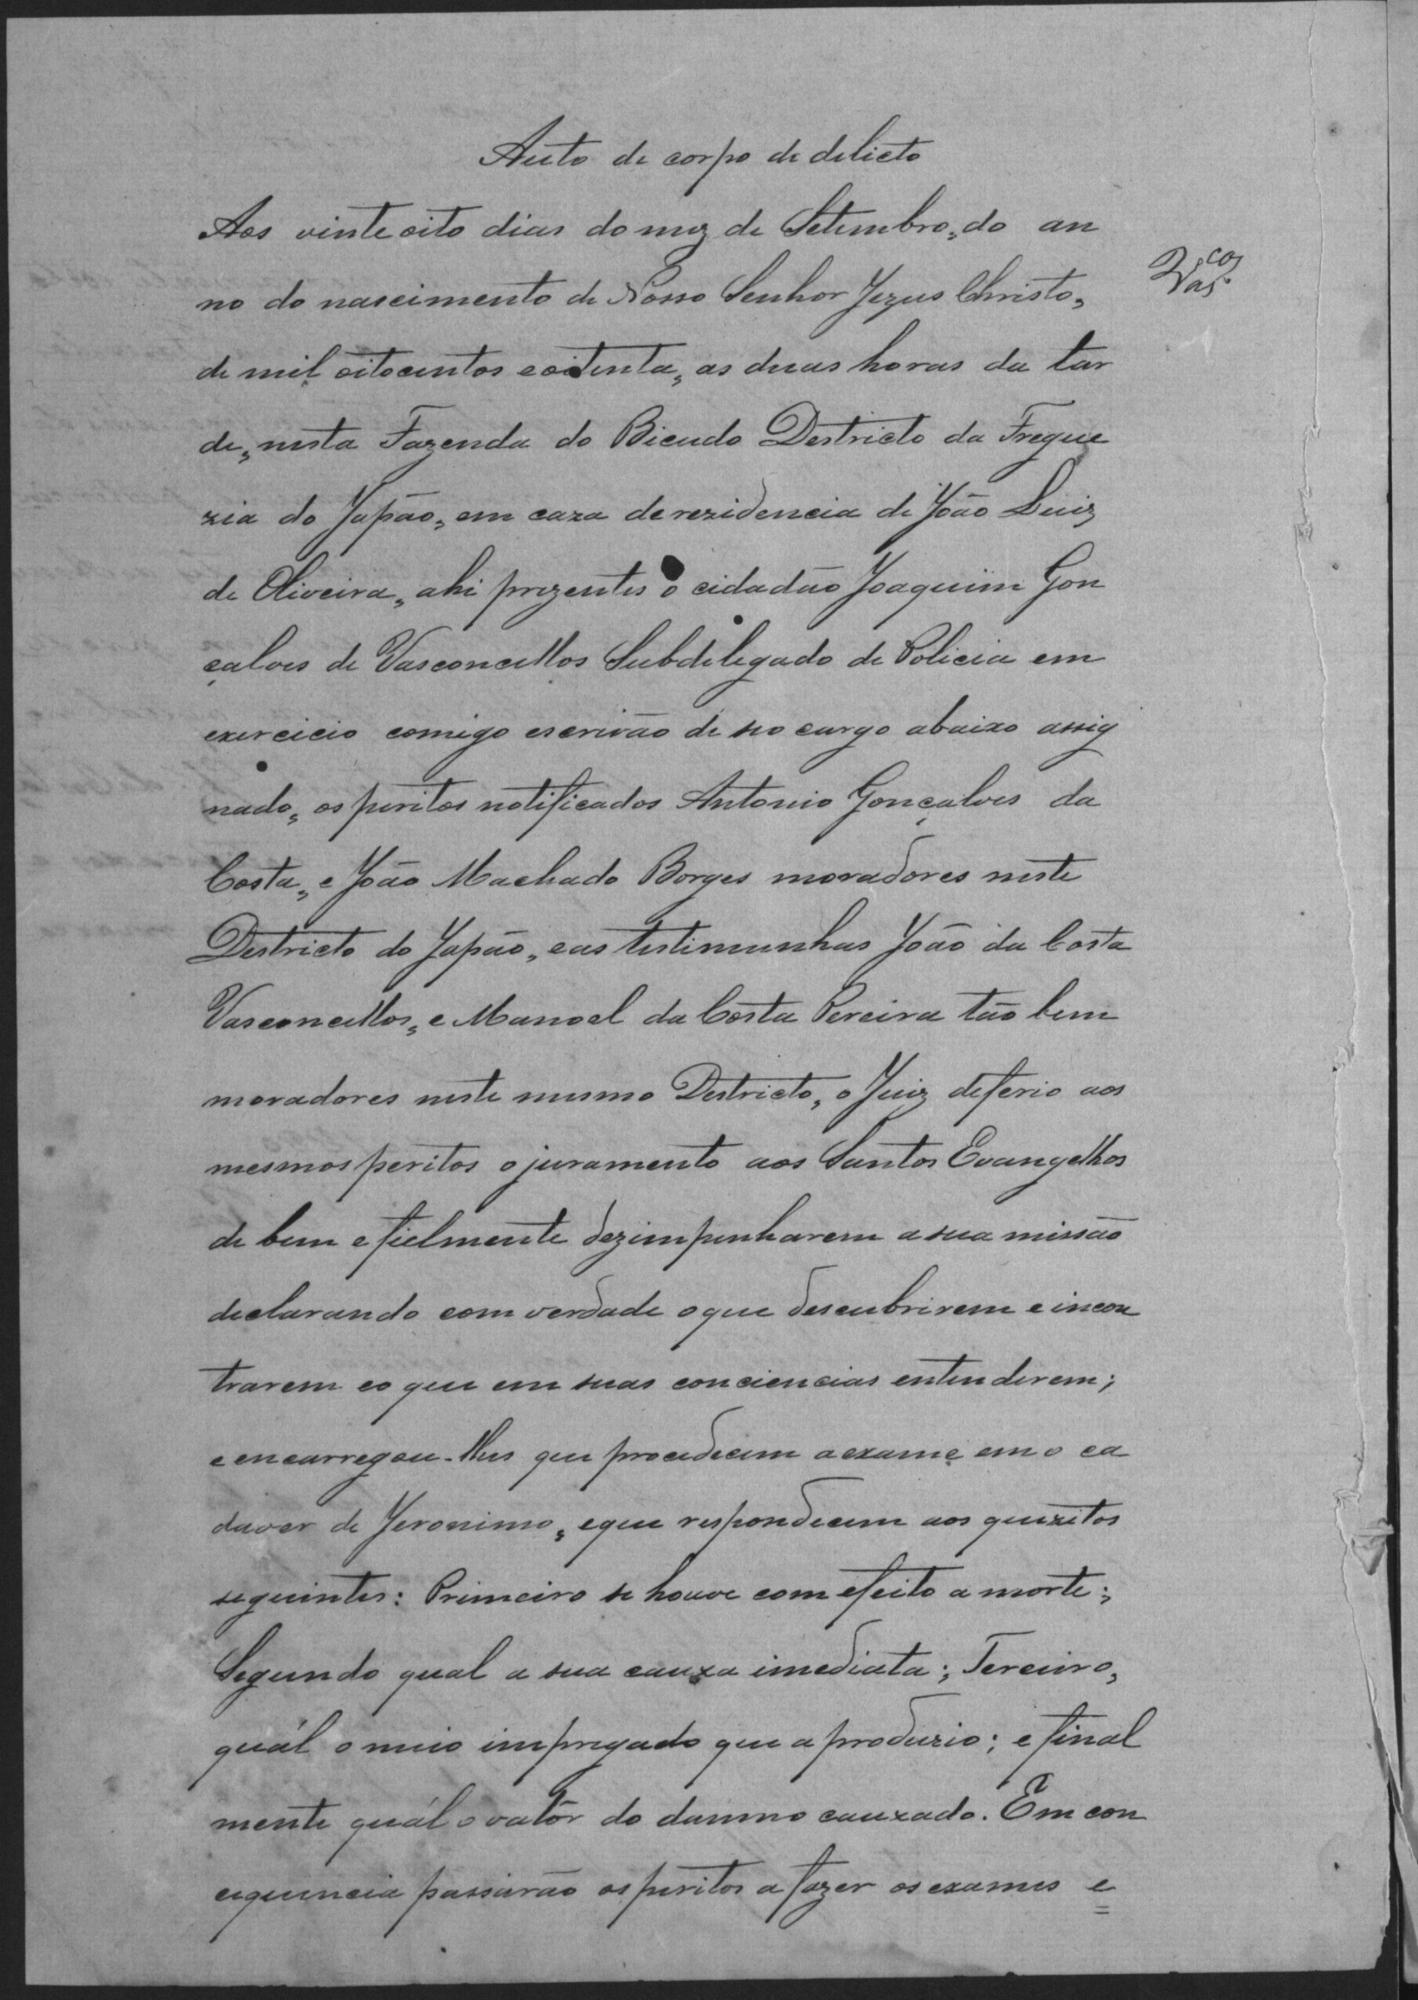 Auto de corpo de delicto
Aos vinte oito dias do mez de Setembro, do an
no do nascimento de Nosso Senhor Jezus Christo,
Vas.cos
de mil oitocentos eoitenta, as duas horas da tar
de, nesta Fazenda do Bicudo Destricto da Fregue
zia do Japão, em caza derezidencia de João Luiz
de Oliveira, ahi prezentes o cidadão Joaquim Gon
çalves de Vasconcellos Subdelegado de Policia em
exercicio comigo escrivão de seo cargo abaixo assig
nado, os peritos notificados Antonio Gonçalves da
Costa, e João Machado Borges moradores neste
Destricto do Japão, eas testimunhas João da Costa
Vasconcellos, e Manoel da Costa Pereira tão bem
moradores neste mesmo Destricto, o Juiz deferio aos
mesmos peritos o juramento aos Santos Evangelhos
de bem e fielmente dezimpenharem a sua missão
declarando com verdade o que descubrirem e incon
trarem eo que em suas conciencias entenderem;
e encarregou-lhes que procedecem a exame em o ca
daver de Jeronimo, eque respondecem aos quezitos
seguintes: Primeiro se houve com efeito a morte;
Segundo qual a sua cauza imediata; Terceiro,
quál o meio impregado que a produzio; e final
mente quál o valôr do damno cauzado. Em con
cequencia passarão os peritos a fazer os exames e